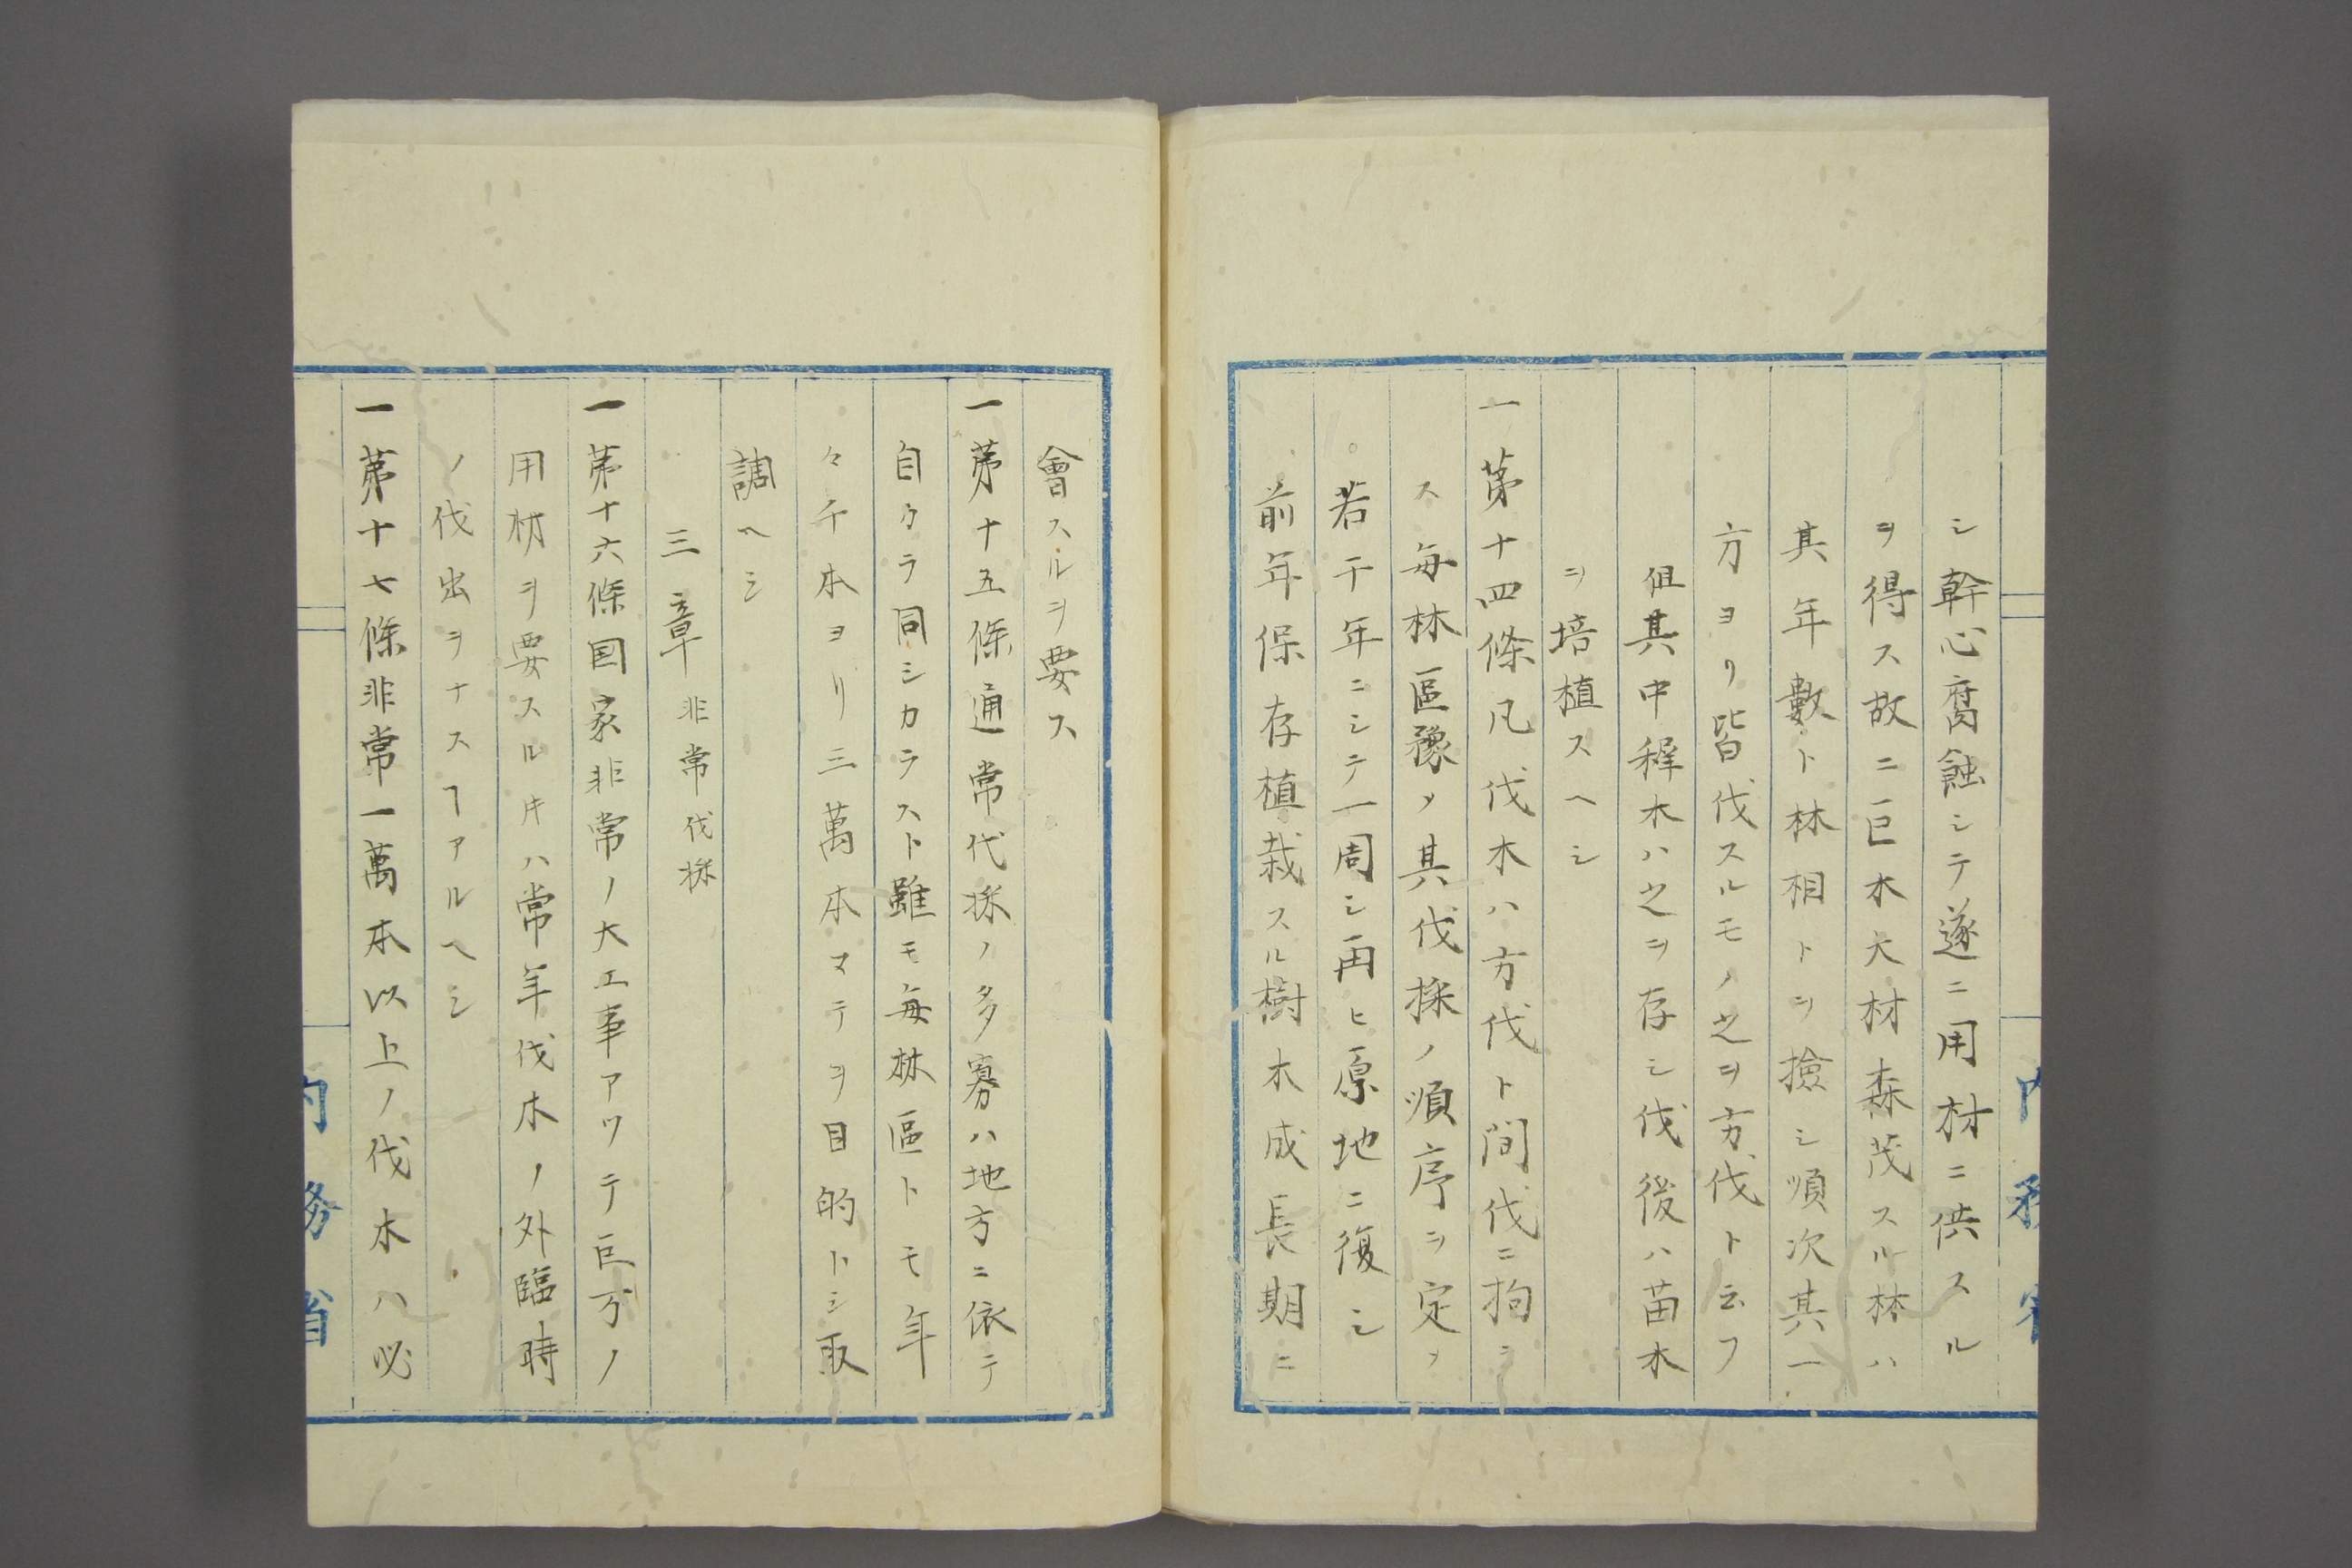 シ幹心腐蝕シテ遂ニ用材ニ供スル
ヲ得ス故ニ巨木大材森茂スル林ハ
其年數ト林相トヲ撿シ順次其一
方ヨリ皆伐スルモノ之ヲ方伐ト云フ
但其中稺木ハ之ヲ存シ伐後ハ苗木
ヲ培植スヘシ
一第十四條凡伐木ハ方伐ト間伐ニ拘ラ
ス毎林區豫メ其伐採ノ順序ヲ定メ
若干年ニシテ一周シ再ヒ原地ニ復シ
前年保存植栽スル樹木成長期ニ
會スルヲ要ス
一第十五條通常代採ノ多寡ハ地方ニ依テ
自カラ同シカラスト雖モ毎林區トモ年
々千本ヨリ三萬本マテヲ目的トシ取
調ヘシ
三章 非常伐採
一第十六條国家非常ノ大工事アツテ巨万ノ
用材ヲ要スルキハ常年伐木ノ外臨時
ノ伐出ヲナスヿアルヘシ
一第十七條非常一萬本以上ノ伐木ハ必
内務省